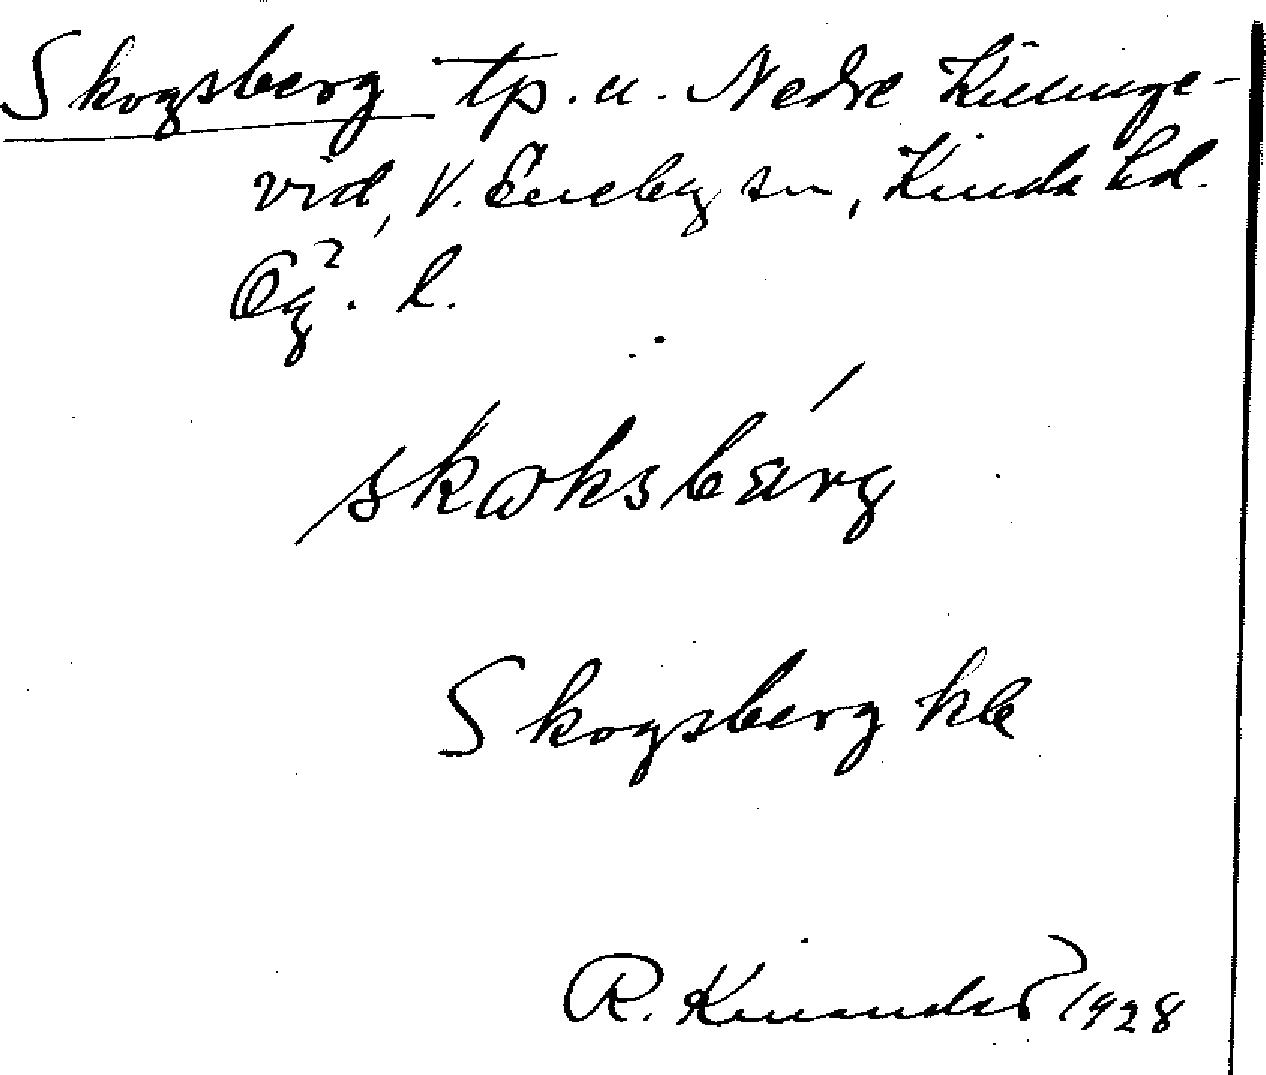 Skogsberg tp. u. Nedre Killinge-
vid, V. Eneby sn, Kinda hd.
Ög. l.
skoksbärg
Skogsberg kla
R. Kinander 1928